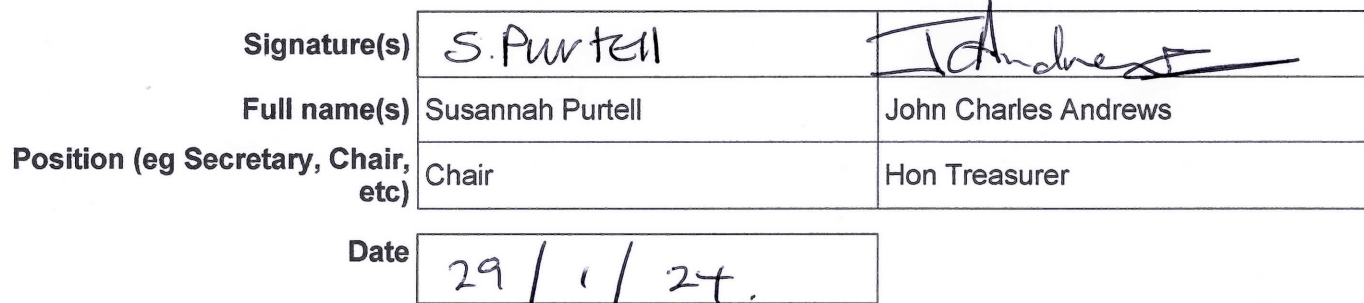 Signature(s) S. Purtell JCAndrews
Full name(s) Susannah Purtell John Charles Andrews
Position (eg Secretary, Chair,
etc) Chair Hon Treasurer
Date 29/1/24.